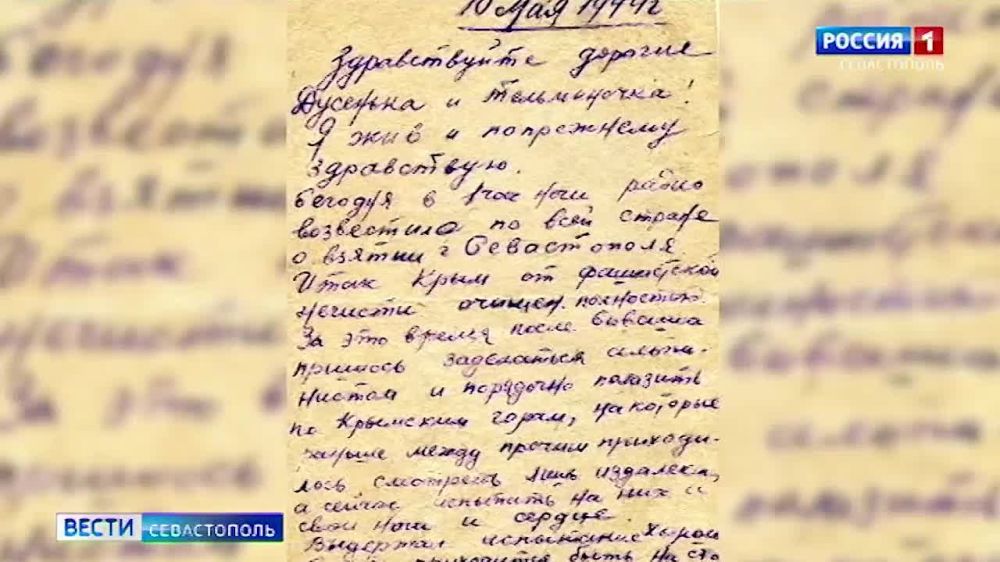 10 Мая 1944г
Здравствуйте дорогие
Дусенька и тельмочка!
Я жив и попрежнему
здравствую.
Сегодня в 1 час ночи радио
возвестило по всей стране
о взятии г Севастополя
Итак Крым от фашистской
нечисти очищен полностью.
За это время после Сиваша
пришлось заделаться альпи-
нистом и порядочно полазить
по Крымским горам, на которые
раньше между прочим приходи-
лось смотреть лишь издалека,
а сейчас испытать на них и
свои ноги и сердце.
Выдержал испытание
приходится быть на сто
РОССИЯ 1
СЕВАСТОПОЛЬ
ВЕСТИ СЕВАСТОПОЛЬ